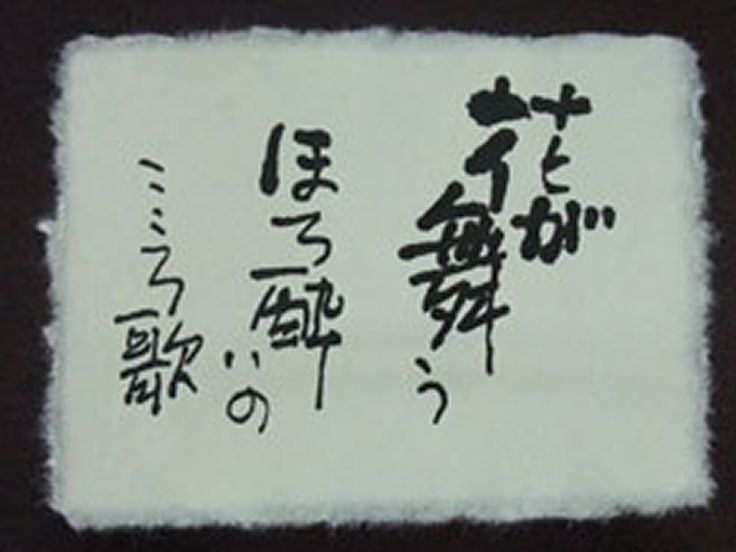 花が舞う
ほろ酔いの
こころ歌